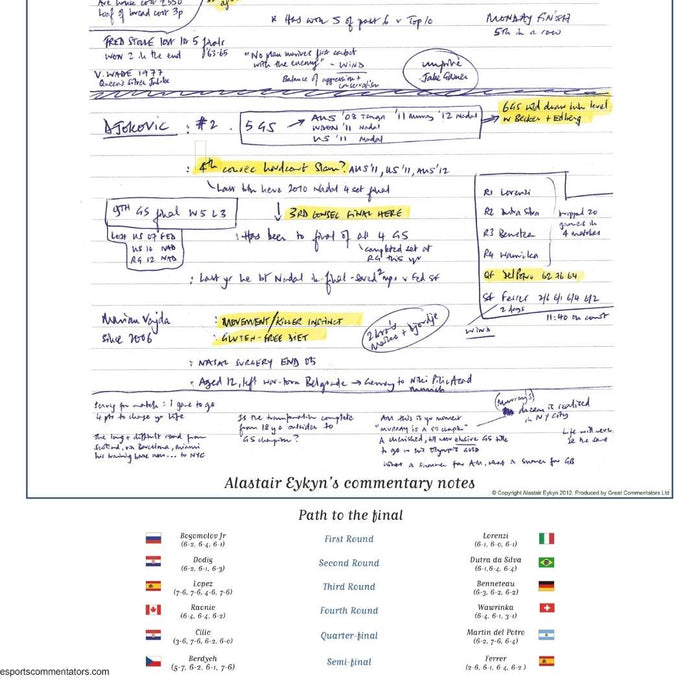 loaf of bread cost 3p
* Has won 5 of past 6 v Top 10
MONDAY FINISH
5th in a row
"No plan survives first contact
with the enemy" - WIND
Balance of aggression +
conservatism
V. WADE 1977
umpire
Jake Garner
DJOKOVIC : #2. 5 GS → AUS '08 Tsonga '11 Murray '12 Nadal
WDON '11 Nadal
US '11 Nadal
6GS wld draw him level
w Becker + Edberg
: 4th consec hardcourt Slam? AUS'11, US'11, AUS'12
Last 2010 Nadal 4 set final
9TH GS final W5 L3
↓ 3RD CONSEC FINAL HERE
Lost US 07 FED
US 10 NAD
RG 12 NAD
: Has been to final of all 4 GS
completed set at
RG this yr
: Last yr he bt Nadal in final - saved 2 mps v Fed SF
R1 Lorenzi
R2 Dutra Silva
R3 Benneteau
R4 Wawrinka
QF Del Potro 62 76 64
SF Ferrer 2/6 6/1 6/4 6/2
2 days
dropped 20
games in
4 matches
WIND
11:40 on court
Marian Vajda
since 2006
: MOVEMENT/KILLER INSTINCT
: GLUTEN-FREE DIET
2 bro's
Marko + Djordje
: NASAL SURGERY END 05
: Aged 12, left war-torn Belgrade → Germany to Niki Pilic Acad
Munich
4 pts to change yr life
The long + difficult road from
Scotland, via Barcelona, Miami
his training base now... to NYC
Is the transformation complete
from 18 yo outsider to
GS champion?
"MURRAY is a GS champ"
A cherished, till now elusive GS title
to go w his Olympic gold
What a summer for AM, what a summer for GB
(Murray's)
dream is realised
in NY city
Life will never
be the same
Alastair Eykyn's commentary notes
© Copyright Alastair Eykyn 2012. Produced by Great Commentators Ltd
Path to the final
Bogomolov Jr
(6-2, 6-4, 6-1)
First Round
Lorenzi
(6-1, 6-0, 6-1)
Dodig
(6-2, 6-1, 6-3)
Second Round
Dutra da Silva
(6-1, 6-4, 6-4)
Lopez
(7-6, 7-6, 4-6, 7-6)
Third Round
Benneteau
(6-3, 6-2, 6-2)
Raonic
(6-4, 6-4, 6-2)
Fourth Round
Wawrinka
(6-4, 6-1, 3-1)
Cilic
(3-6, 7-6, 6-2, 6-0)
Quarter-final
Martin del Potro
(6-2, 7-6, 6-4)
Berdych
(5-7, 6-2, 6-1, 7-6)
Semi-final
Ferrer
(2-6, 6-1, 6-4, 6-2)
esportscommentators.com